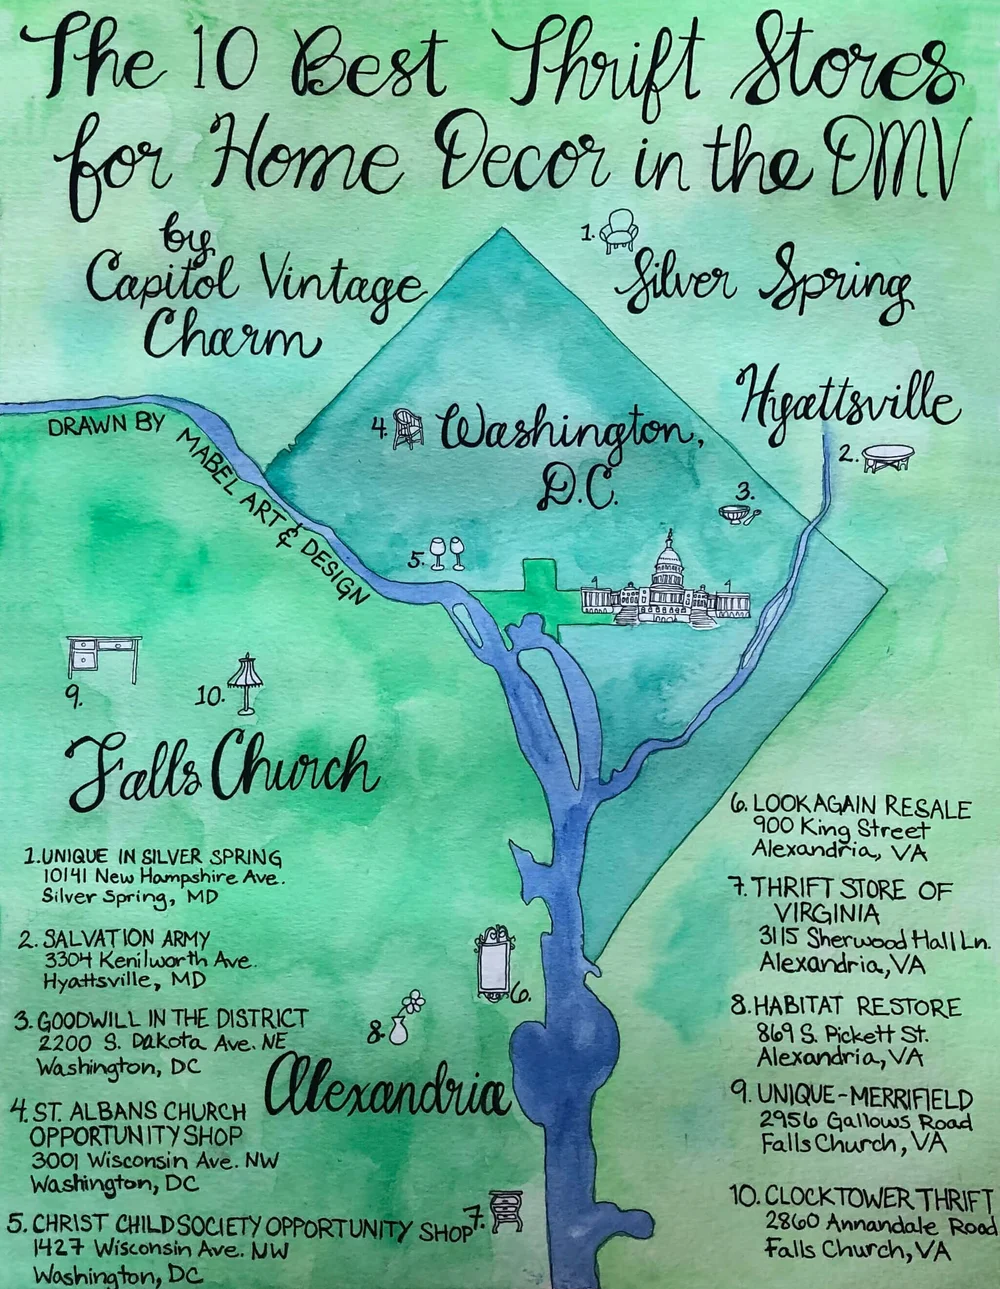 The 10 Best Thrift Stores
for Home Decor in the DMV
by
Capitol Vintage
Charm
1.
Silver Spring
Hyattsville
2.
DRAWN BY
MABEL ART & DESIGN
4.
Washington,
D.C.
3.
5.
9.
10.
Falls Church
1. UNIQUE IN SILVER SPRING
10141 New Hampshire Ave.
Silver Spring, MD
2. SALVATION ARMY
3304 Kenilworth Ave.
Hyattsville, MD
3. GOODWILL IN THE DISTRICT
2200 S. Dakota Ave. NE
Washington, DC
4. ST. ALBANS CHURCH
OPPORTUNITY SHOP
3001 Wisconsin Ave. NW
Washington, DC
5. CHRIST CHILD SOCIETY OPPORTUNITY SHOP
1427 Wisconsin Ave. NW
Washington, DC
6.
8.
Alexandria
7.
6. LOOKAGAIN RESALE
900 King Street
Alexandria, VA
7. THRIFT STORE OF
VIRGINIA
3115 Sherwood Hall Ln.
Alexandria, VA
8. HABITAT RESTORE
869 S. Pickett St.
Alexandria, VA
9. UNIQUE-MERRIFIELD
2956 Gallows Road
Falls Church, VA
10. CLOCKTOWER THRIFT
2860 Annandale Road
Falls Church, VA